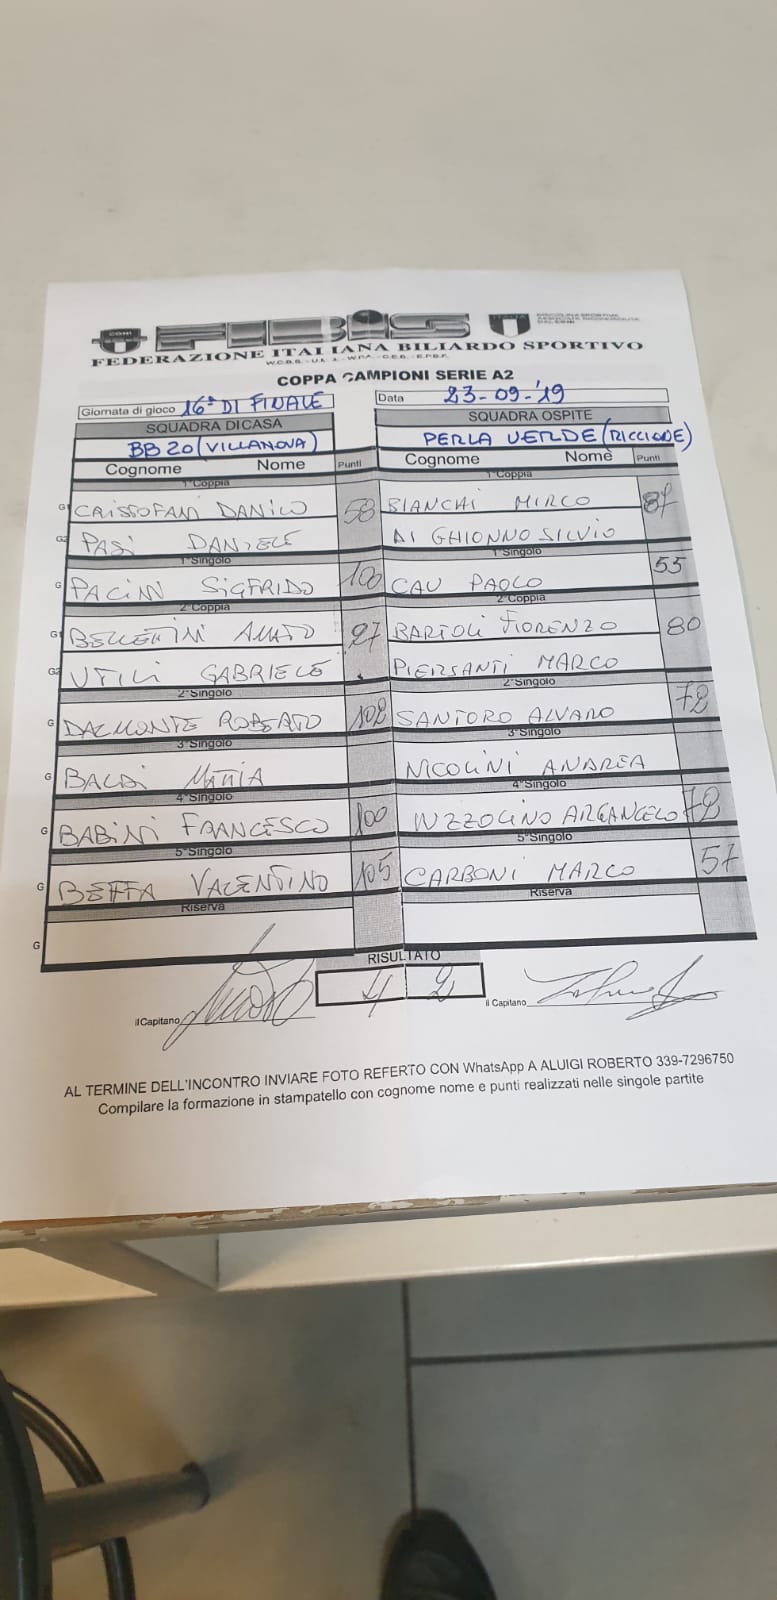 CONI FIBiS
FEDERAZIONE ITALIANA BILIARDO SPORTIVO
COPPA CAMPIONI SERIE A2
Giornata di gioco 16mi DI FINALE Data 23-09-'19
SQUADRA DI CASA SQUADRA OSPITE
BB 20 (VILLANOVA) PERLA VERDE (RICCIONE)
Cognome Nome Punti Cognome Nome Punti
1°Coppia 1°Coppia
G1 CRISSOFANI DANILO 58 BIANCHI MIRCO 87
G2 PASI DANIELE DI GHIONNO SILVIO
1°Singolo 1°Singolo
G PACINI SIGFRIDO 100 CAU PAOLO 55
2°Coppia 2°Coppia
G1 BELLETTINI AMATO 27 BARTOLI FIORENZO 80
G2 UTILI GABRIELE PIERSANTI MARCO
2°Singolo 2°Singolo
G DALMONTE ROBERTO 102 SANTORO ALVARO 72
3°Singolo 3°Singolo
G BALDI MATTIA NICOLINI ANDREA
4°Singolo 4°Singolo
G BABINI FRANCESCO 100 IUZZOLINO ARCANGELO 72
5°Singolo 5°Singolo
G BEFFA VALENTINO 105 CARBONI MARCO 57
Riserva Riserva
G
RISULTATO
4 2
il Capitano il Capitano
AL TERMINE DELL'INCONTRO INVIARE FOTO REFERTO CON WhatsApp A ALUIGI ROBERTO 339-7296750
Compilare la formazione in stampatello con cognome nome e punti realizzati nelle singole partite